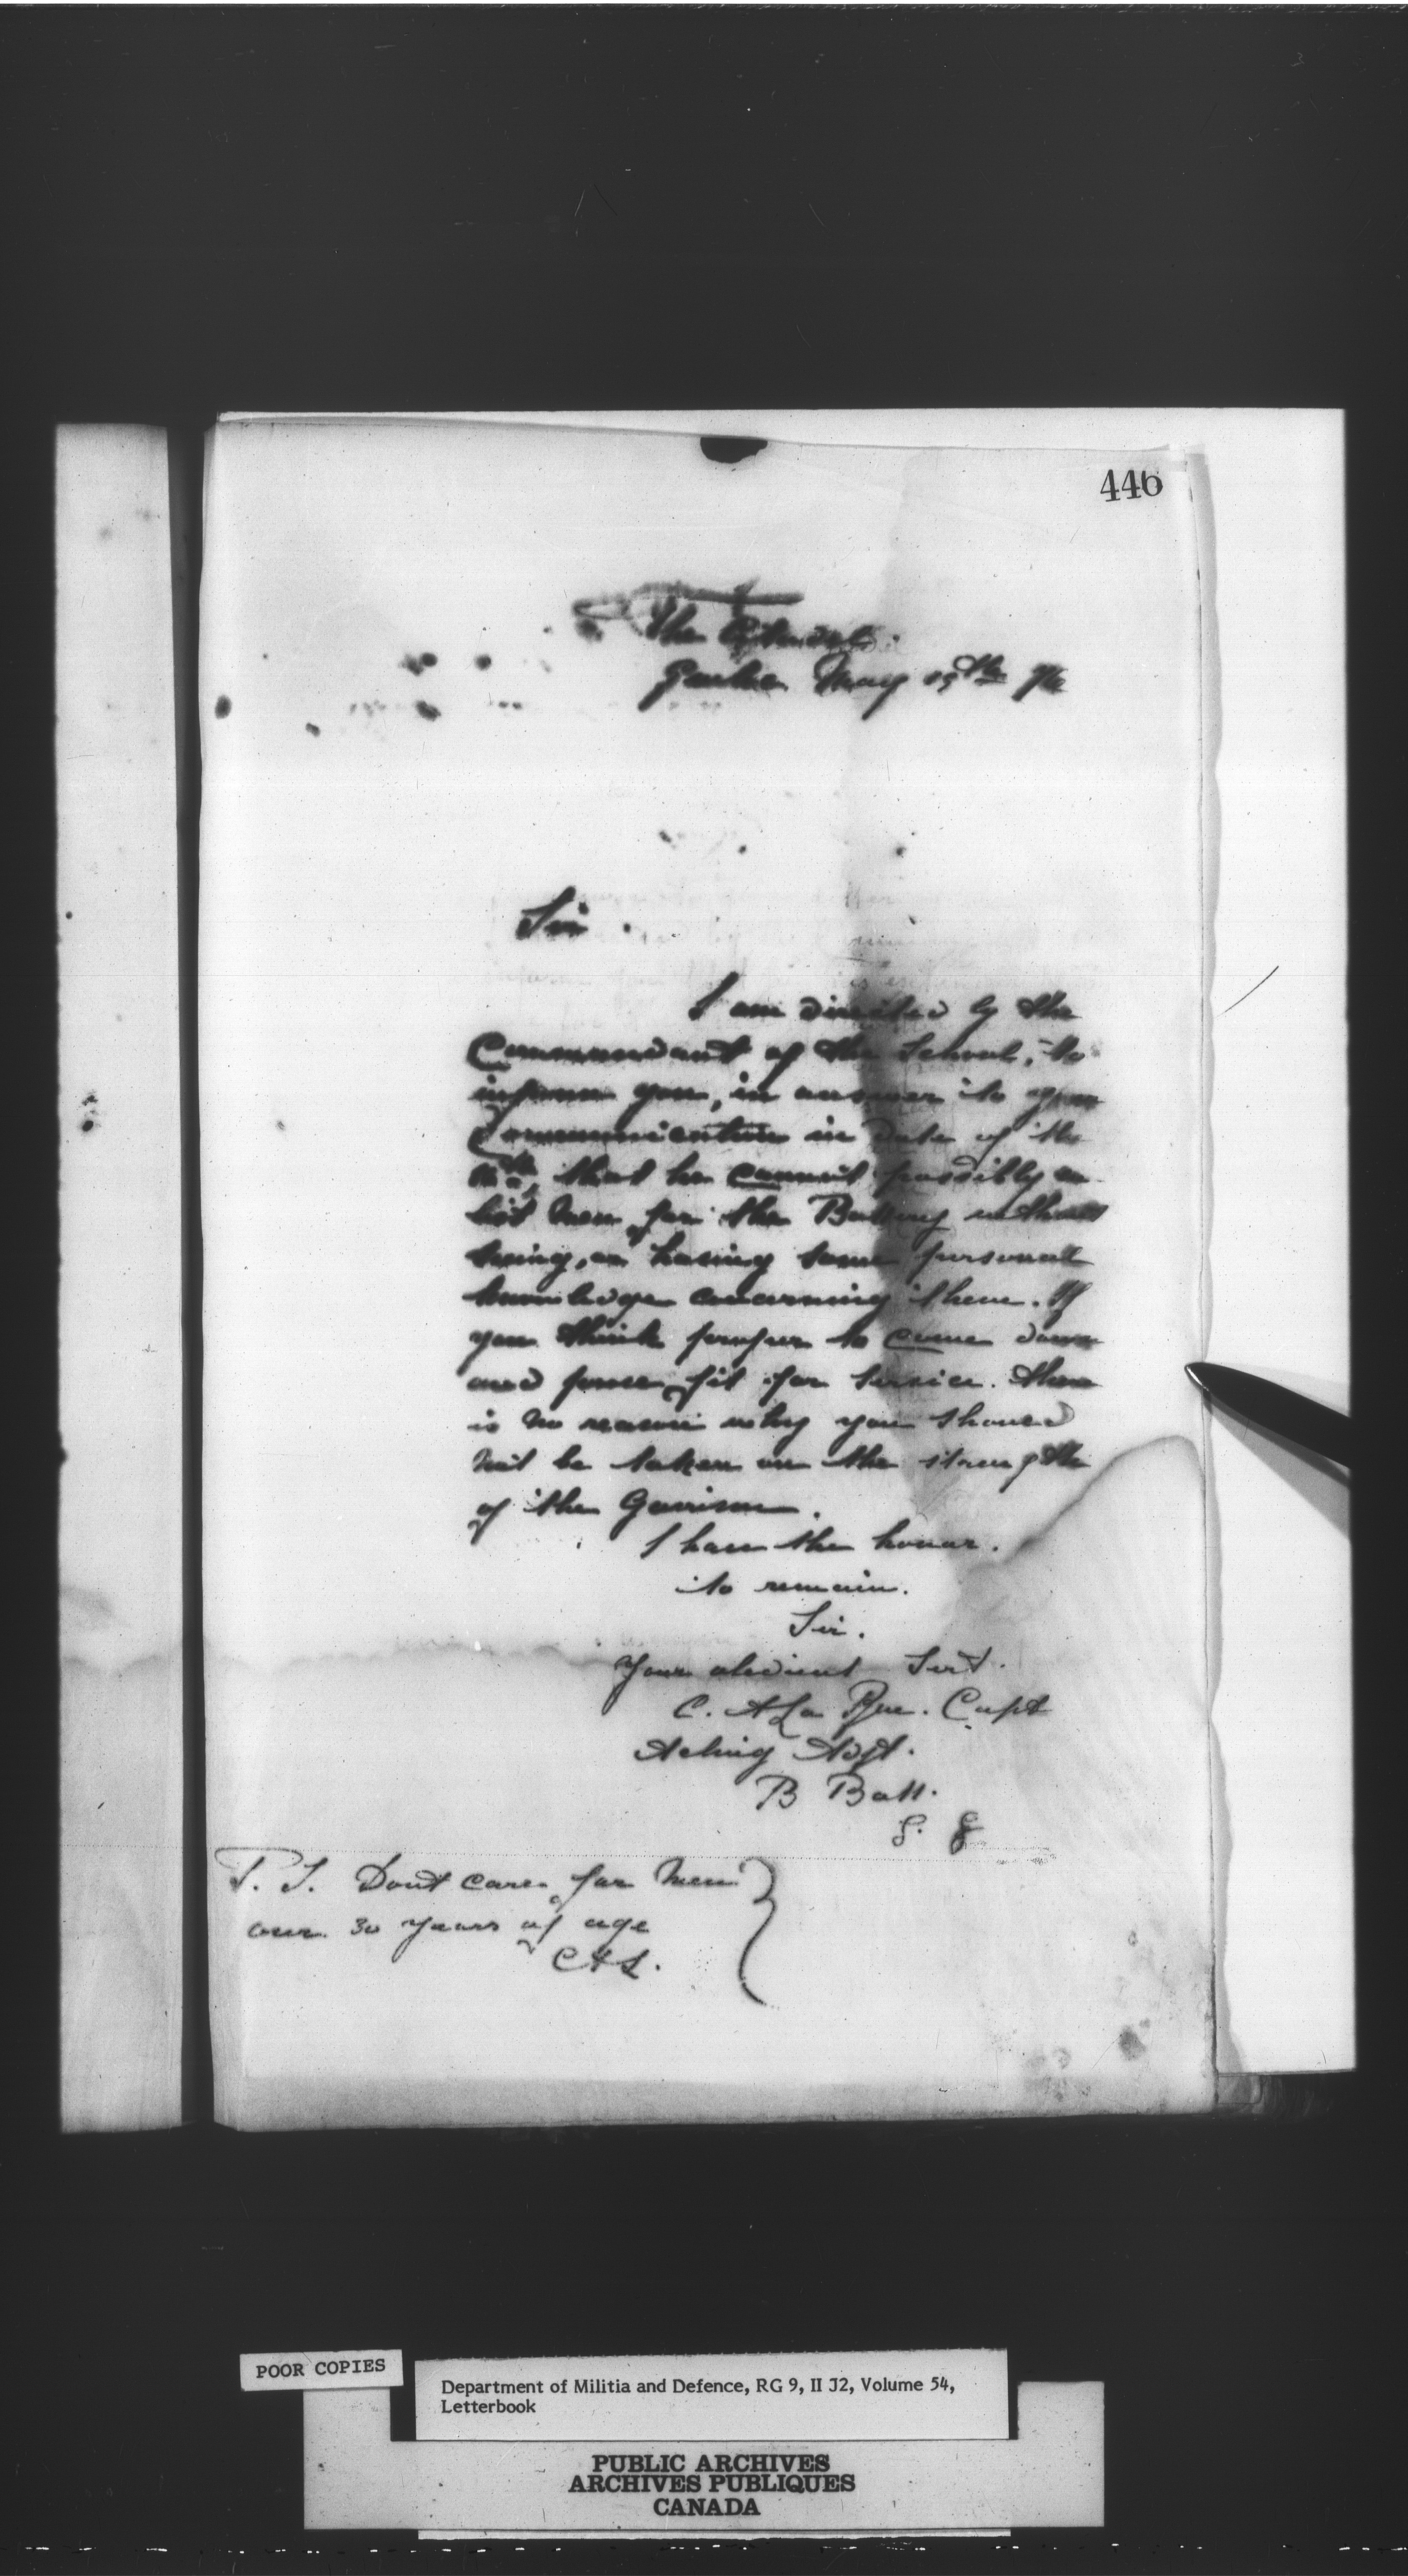 446
The Citadel.
Quebec May 19th 76
Sir.
I am directed by the
Commandant of the School, to
inform you, in answer to your
Communication in date of the
that he cannot possibly en-
list Men for the Battery without
seeing, or having some personal
knowledge concerning them. If
you think proper to come down
and prove fit for Service. there
is no reason why you should
not be taken on the strength
of the Garrison.
I have the honor.
to remain.
Sir.
Your obedient Sert.
C. A La Rue. Capt
Acting Adjt.
B Batt.
P.S. Dont care for Men
over 30 years of age
CAL.
POOR COPIES
Department of Militia and Defence, RG 9, II J2, Volume 54,
Letterbook
PUBLIC ARCHIVES
ARCHIVES PUBLIQUES
CANADA